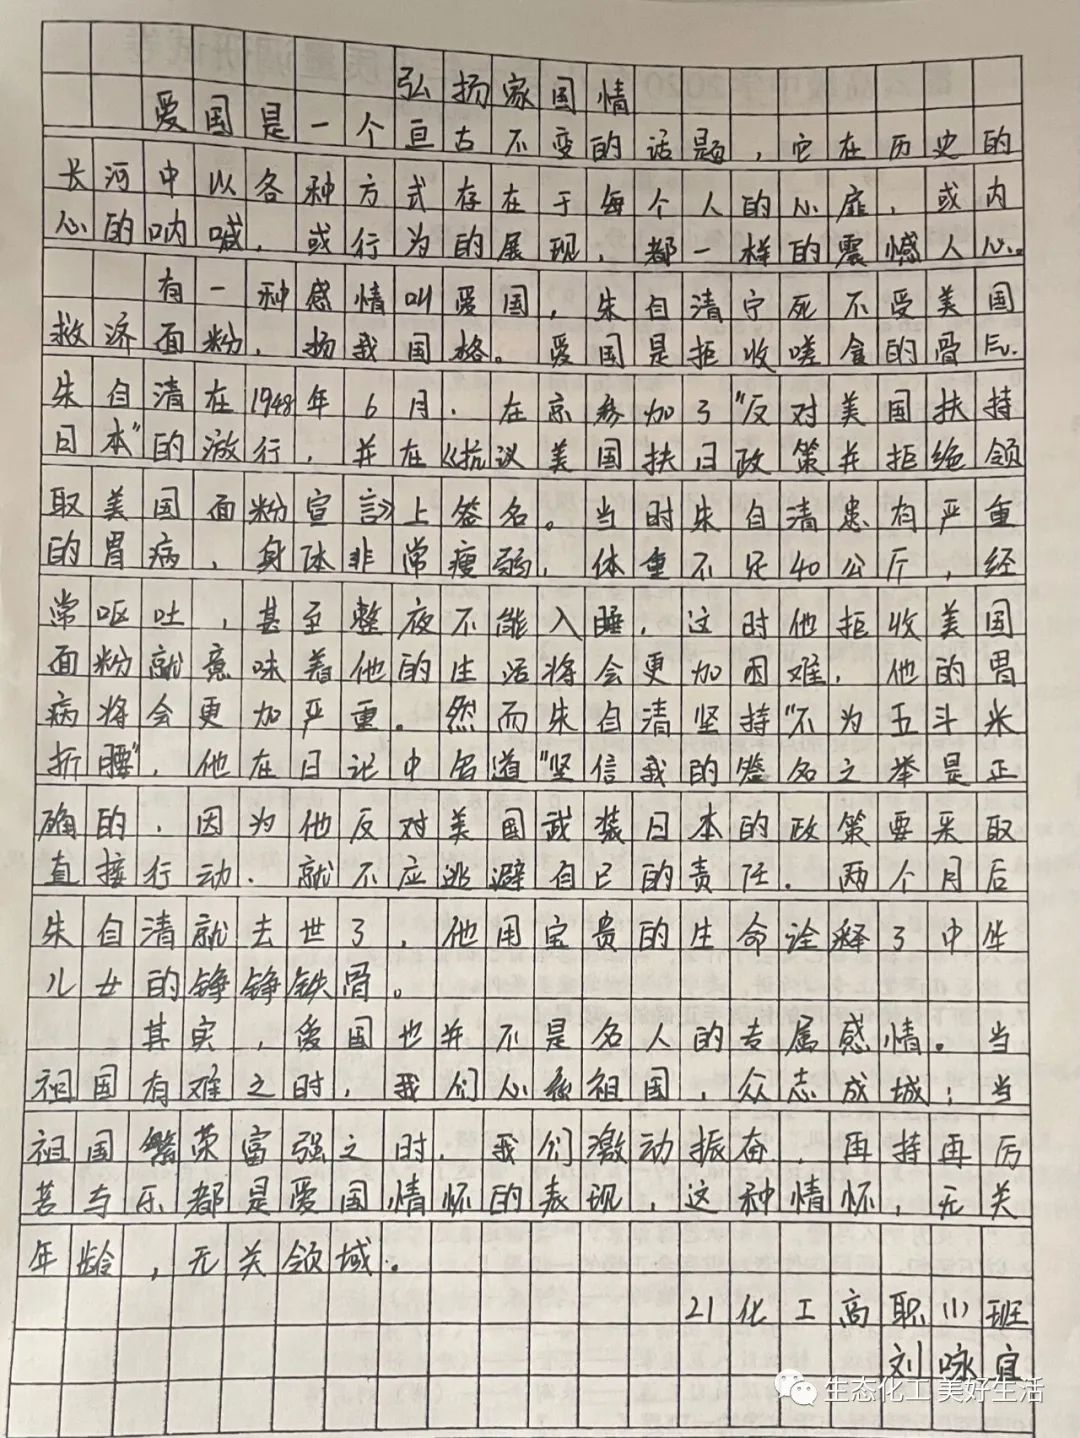 弘扬家国情
爱国是一个亘古不变的话题，它在历史的
长河中以各种方式存在于每个人的心扉，或内
心的呐喊，或行为的展现，都一样的震憾人心。
有一种感情叫爱国，朱自清宁死不受美国
救济面粉，扬我国格。爱国是拒收嗟食的骨气。
朱自清在1948年6月，在京参加了“反对美国扶持
日本”的游行，并在《抗议美国扶日政策并拒绝领
取美国面粉宣言》上签名。当时朱自清患有严重
的胃病，身体非常瘦弱，体重不足40公斤，经
常呕吐，甚至整夜不能入睡，这时他拒收美国
面粉就意味着他的生活将会更加困难，他的胃
病将会更加严重。然而朱自清坚持“不为五斗米
折腰”，他在日记中写道“坚信我的签名之举是正
确的，因为他反对美国武装日本的政策要采取
直接行动，就不应逃避自己的责任。两个月后
朱自清就去世了，他用宝贵的生命诠释了中华
儿女的铮铮铁骨。
其实，爱国也并不是名人的专属感情。当
祖国有难之时，我们心系祖国，众志成城；当
祖国繁荣富强之时，我们激动振奋，再持再厉
苦与乐都是爱国情怀的表现，这种情怀，无关
年龄，无关领域。
21化工高职(1)班
刘咏宜
生态化工 美好生活